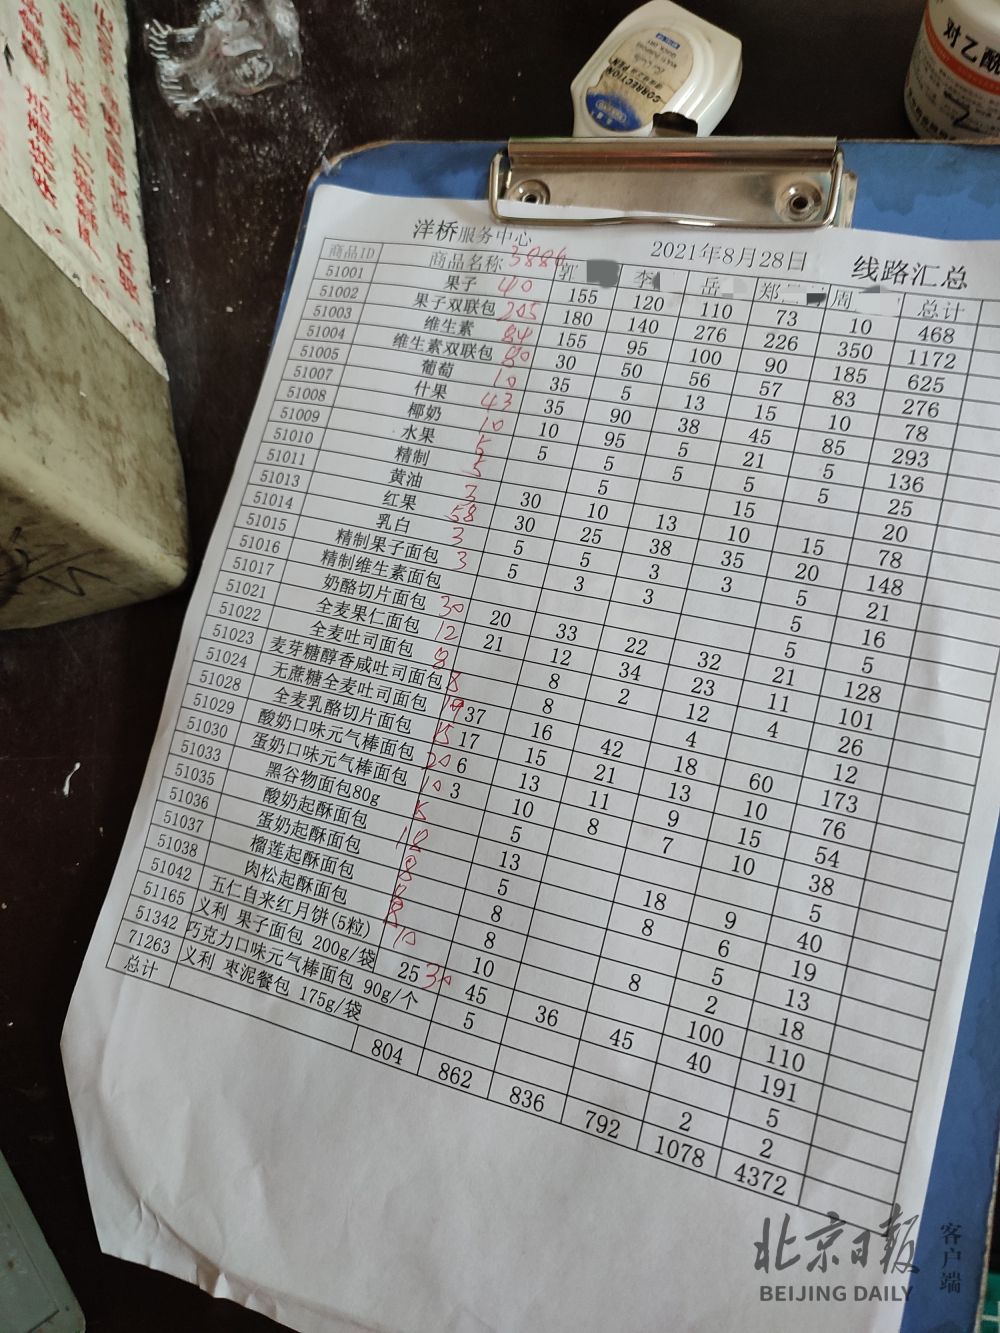 CORRECTION PEN
对乙酰
洋桥服务中心 2021年8月28日 线路汇总
商品ID 商品名称 3886 郭 李 岳 郑 周 总计
51001 果子 40 155 120 110 73 10 468
51002 果子双联包 205 180 140 276 226 350 1172
51003 维生素 84 155 95 100 90 185 625
51004 维生素双联包 80 30 50 56 57 83 276
51005 葡萄 10 35 5 13 15 10 78
51007 什果 43 35 90 38 45 85 293
51008 椰奶 10 10 95 5 21 5 136
51009 水果 5 5 5 5 5 5 25
51010 精制 5 5 15 20
51011 黄油 3 30 10 13 10 15 78
51013 红果 58 30 25 38 35 20 148
51014 乳白 3 5 5 3 3 5 21
51015 精制果子面包 3 5 3 3 5 16
51016 精制维生素面包 5 5
51017 奶酪切片面包 30 20 33 22 32 21 128
51021 全麦果仁面包 12 21 12 34 23 11 101
51022 全麦吐司面包 8 8 2 12 4 26
51023 麦芽糖醇香咸吐司面包 8 8 4 12
51024 无蔗糖全麦吐司面包 37 16 42 18 60 173
51028 全麦乳酪切片面包 15 17 15 21 13 10 76
51029 酸奶口味元气棒面包 20 6 13 11 9 15 54
51030 蛋奶口味元气棒面包 10 3 10 8 7 10 38
51033 黑谷物面包80g 5 5 5
51035 酸奶起酥面包 13 18 9 40
51036 蛋奶起酥面包 8 5 8 6 19
51037 榴莲起酥面包 8 8 5 13
51038 肉松起酥面包 8 8 2 18
51042 五仁自来红月饼(5粒) 10 10 100 110
51165 义利 果子面包 200g/袋 25 30 45 36 45 40 191
51342 巧克力口味元气棒面包 90g/个 5 5
71263 义利 枣泥餐包 175g/袋 2 2
总计 804 862 836 792 1078 4372
北京日报 客户端
BEIJING DAILY